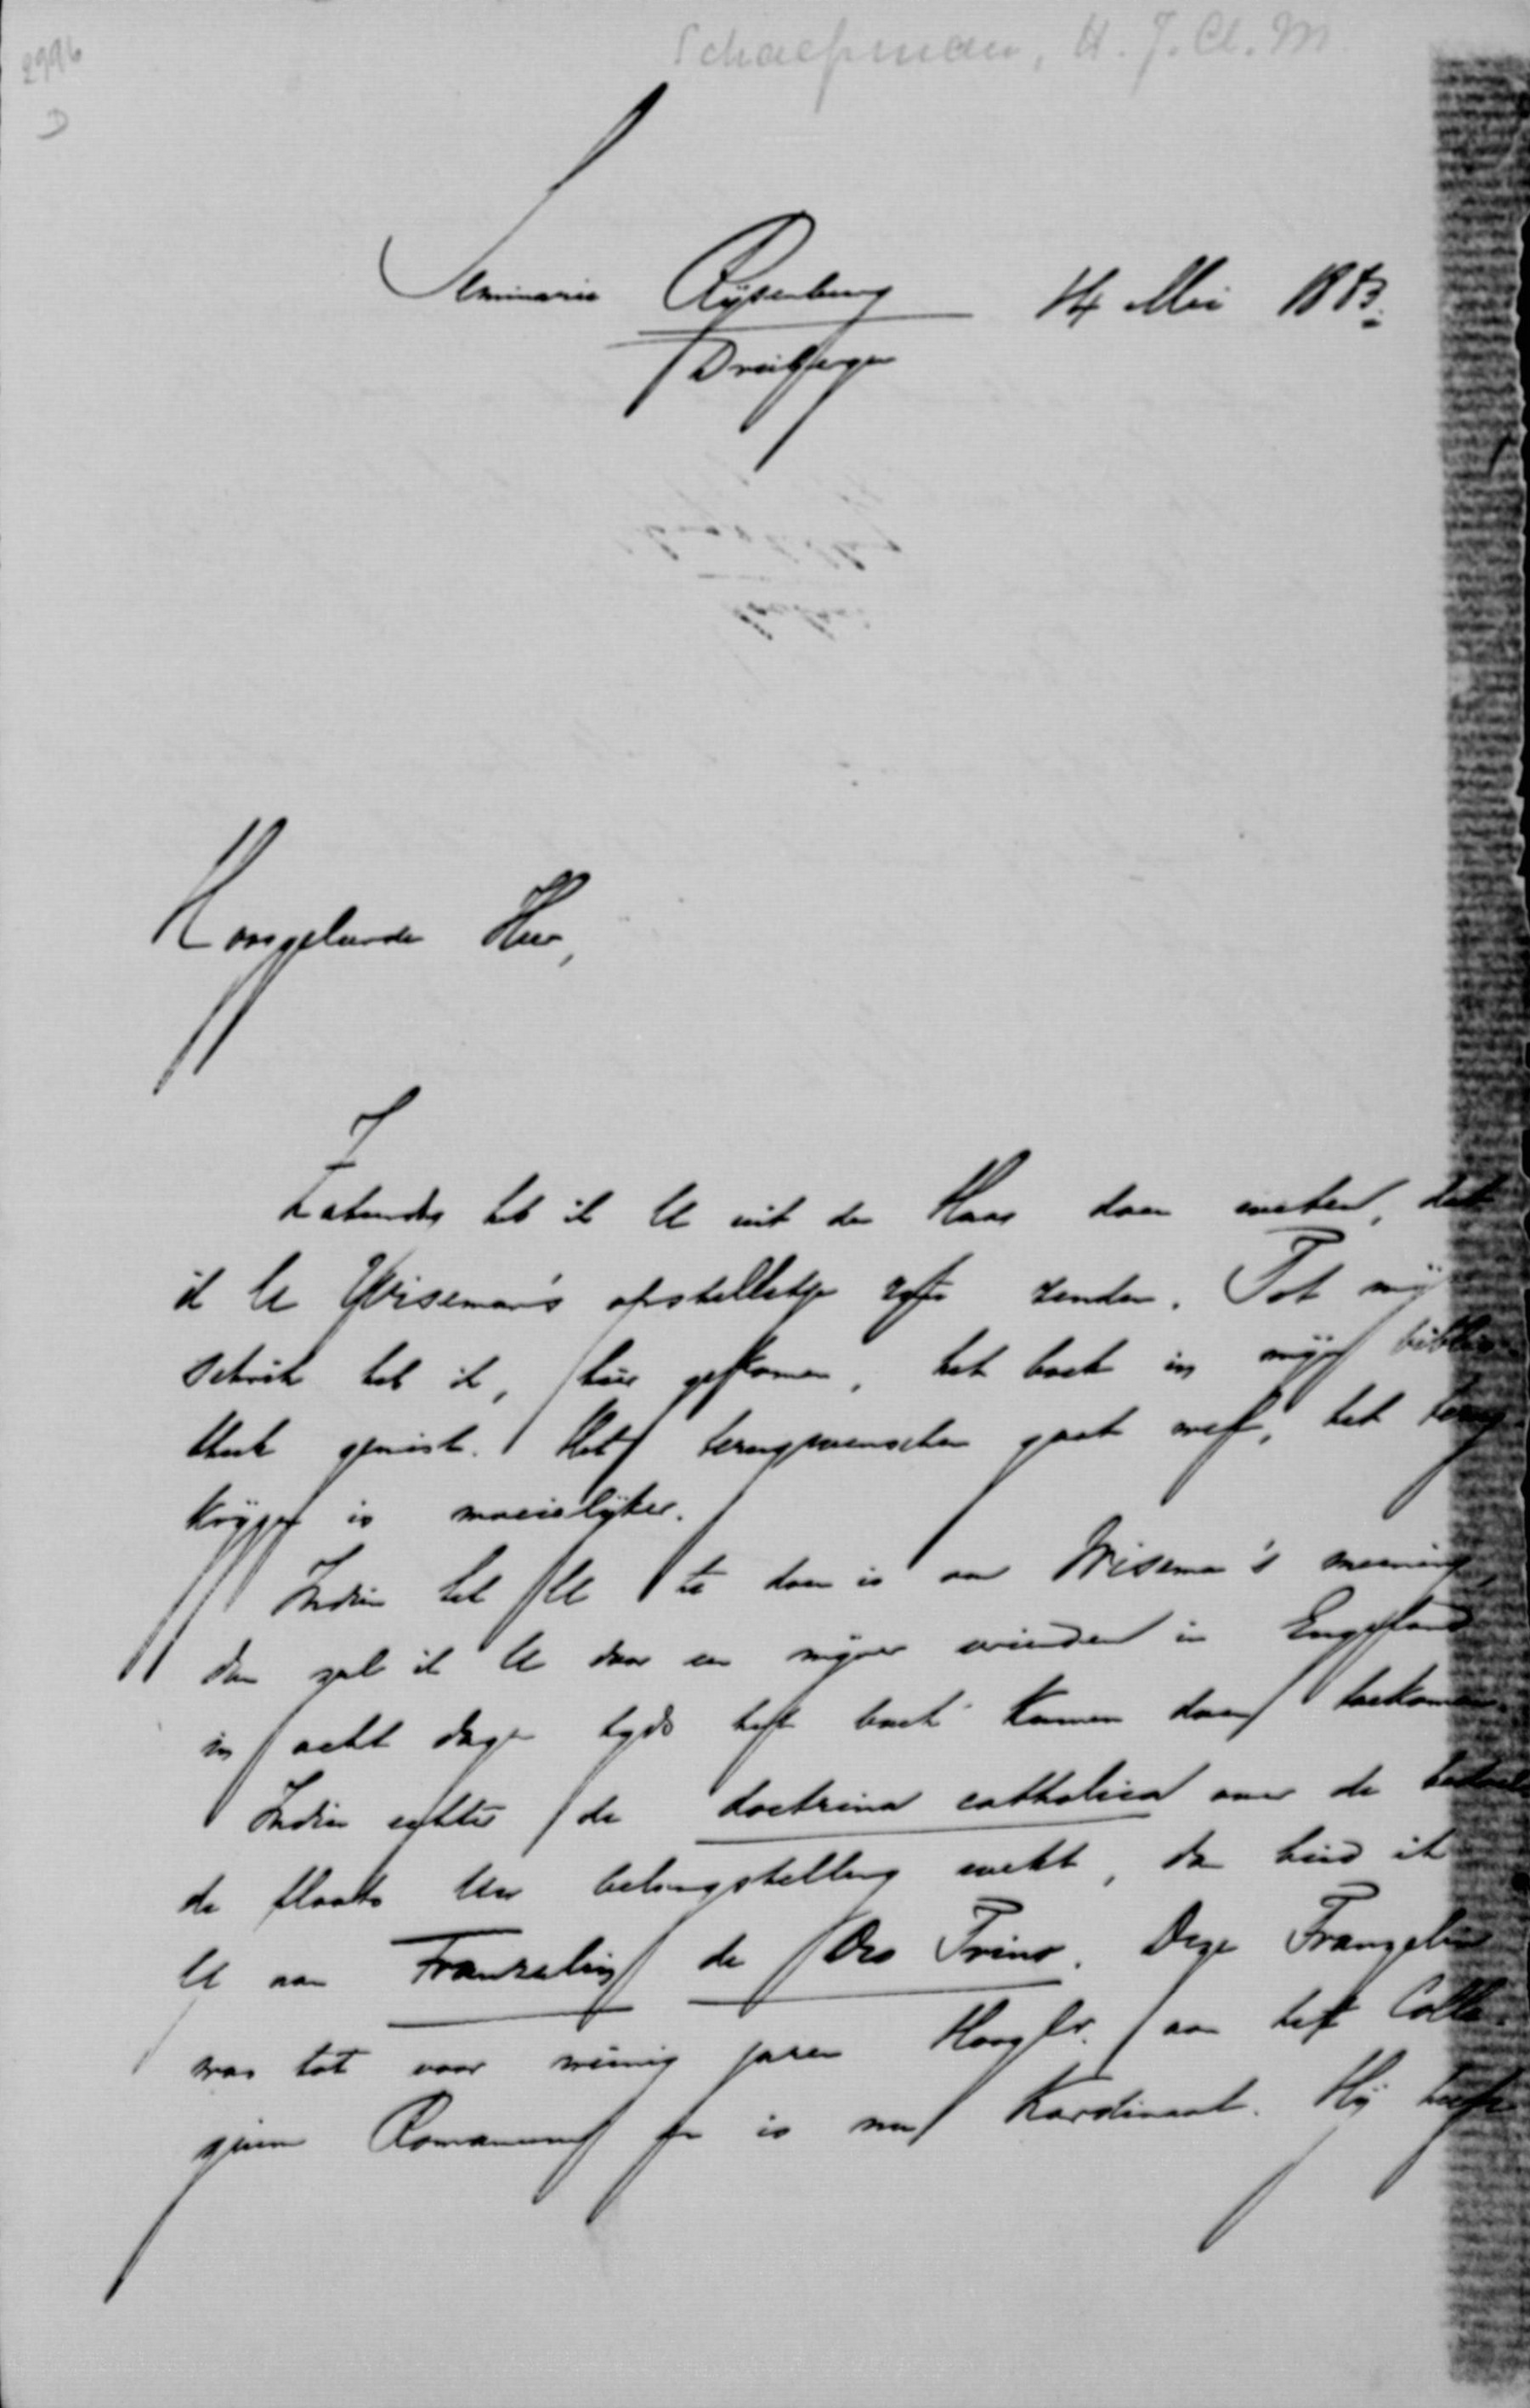 Schaepman, H. J. Cl. M.
2996
D
Seminarie Rijsenburg 14 Mei 1883.
Driebergen
Hooggeleerde Heer,
Zaturdag heb ik U uit den Haag doen weten, dat
ik U Wiseman's opstelletje zou zenden. Tot mijn
schrik heb ik, hier gekomen, het boek in mijn biblio-
theek gemist. Het terugwenschen gaat snel, het terug
krijgen is moeielijker.
Indien het U te doen is om Wiseman's meening,
dan zal ik U door een mijner vrienden in Engeland
in acht dagen tijds het boek kunnen doen toekomen.
Indien echter de doctrina catholica over de
de plaats Uw belangstelling wekt, dan bied ik
U aan Franzelin de Deo Trino. Deze Franzelin
was tot voor weinig jaren Hoogler. aan het Colle-
gium Romanum en is nu Kardinaal. Hij heeft